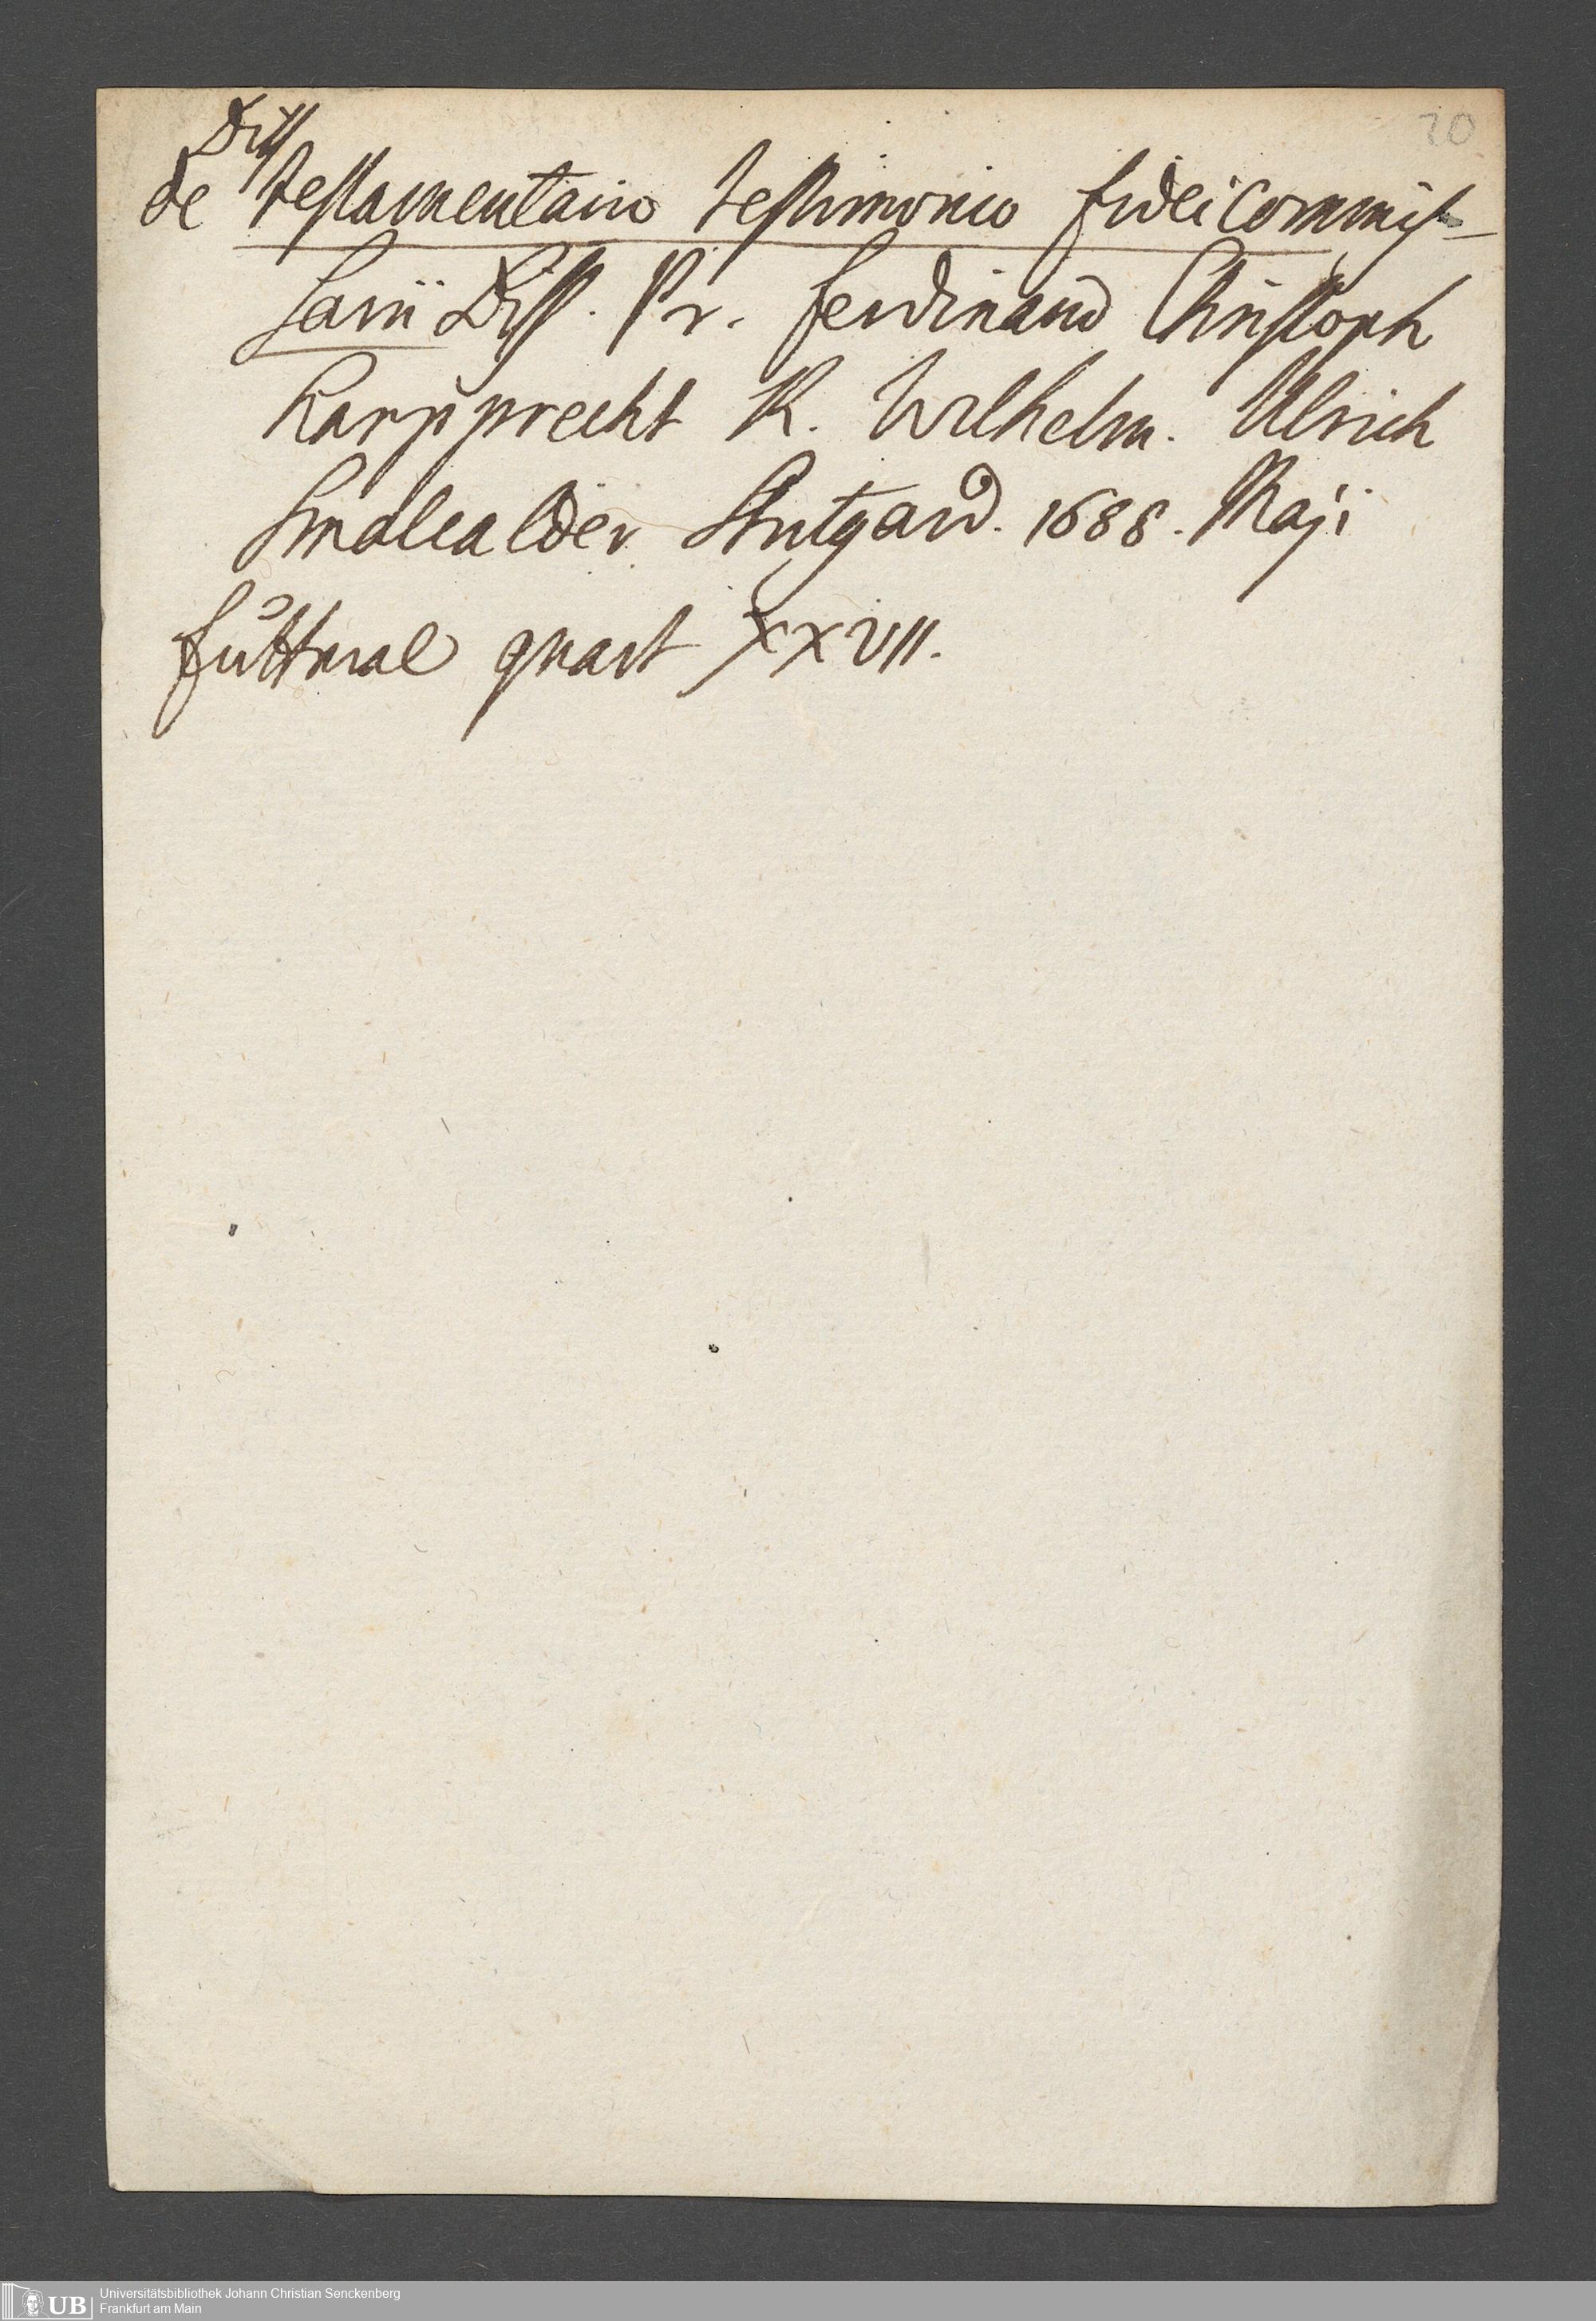 20
Diss
de testamentario testimonio fideicommis-
sarii Diss. Pr. Ferdinand Christoph
Harpprecht R. Wilhelm. Ulrich
Smalcalder Stutgard. 1688. Maji
Futtural quart XXVII.
UB Universitätsbibliothek Johann Christian Senckenberg
Frankfurt am Main